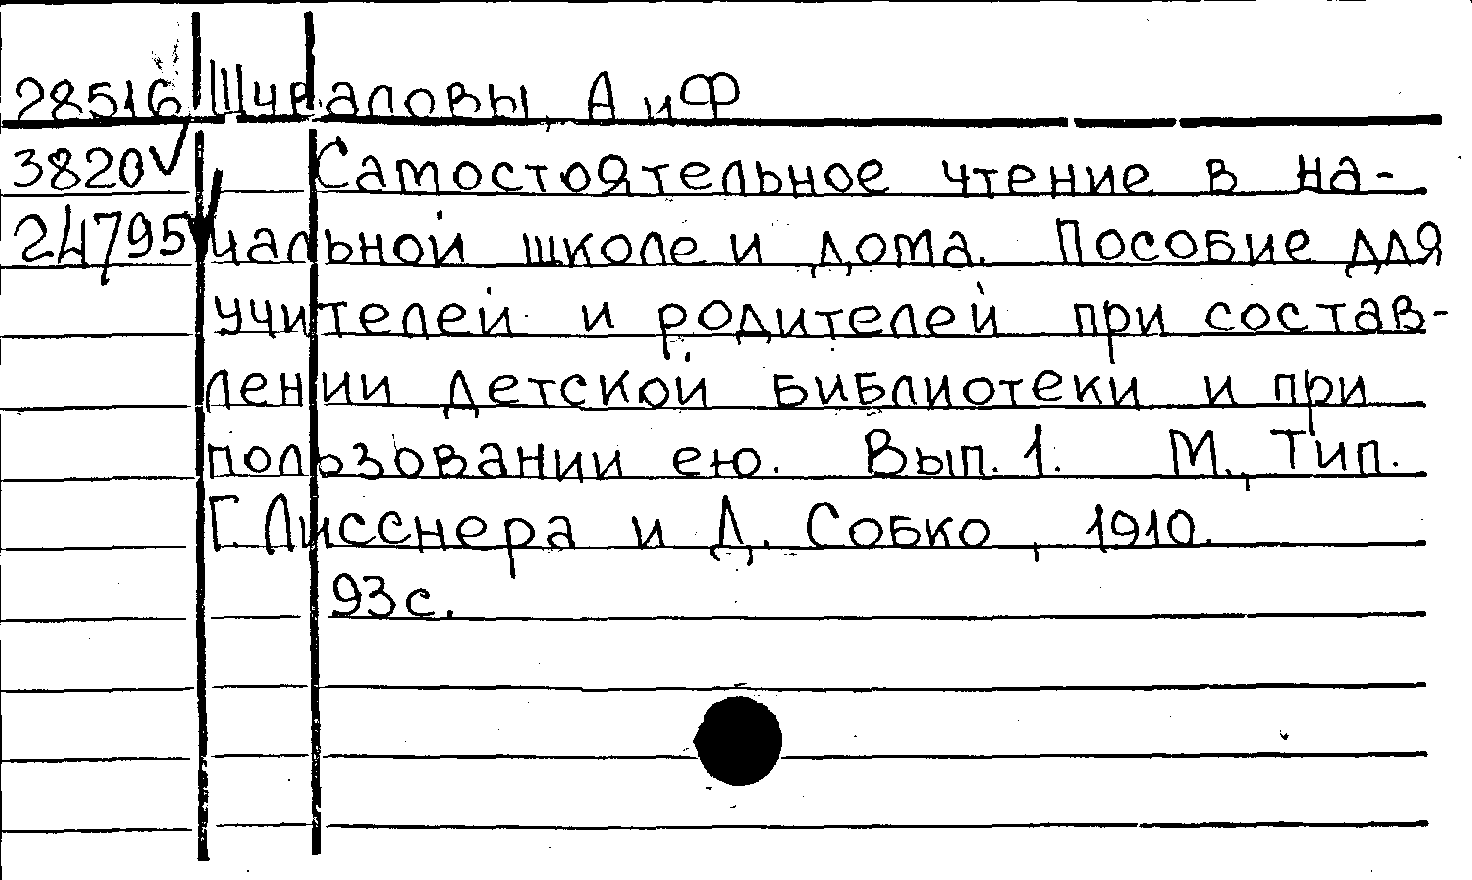 28516 Шуваловы, А и Ф
3820 Самостоятельное чтение в на-
24795 чальной школе и дома. Пособие для
учителей и родителей при состав-
лении детской библиотеки и при
пользовании ею. Вып. 1. М., Тип.
Г. Лисснера и Д. Собко, 1910.
93 с.